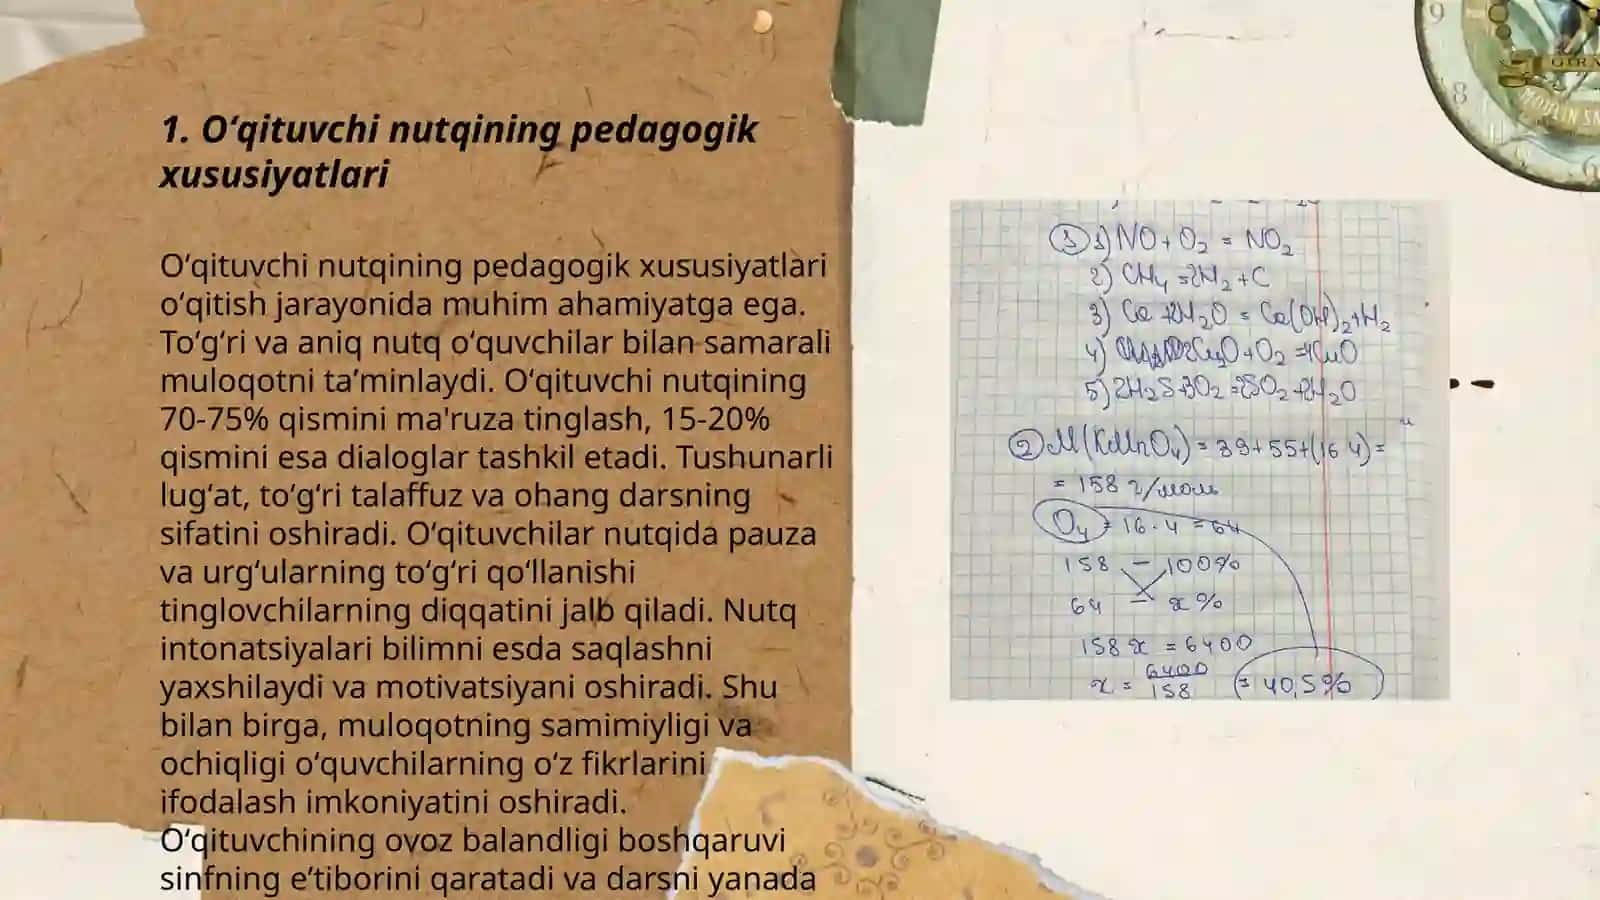 1. Oʻqituvchi nutqining pedagogik
xususiyatlari
Oʻqituvchi nutqining pedagogik xususiyatlari
oʻqitish jarayonida muhim ahamiyatga ega.
Toʻgʻri va aniq nutq oʻquvchilar bilan samarali
muloqotni taʼminlaydi. Oʻqituvchi nutqining
70-75% qismini ma'ruza tinglash, 15-20%
qismini esa dialoglar tashkil etadi. Tushunarli
lugʻat, toʻgʻri talaffuz va ohang darsning
sifatini oshiradi. Oʻqituvchilar nutqida pauza
va urgʻularning toʻgʻri qoʻllanishi
tinglovchilarning diqqatini jalb qiladi. Nutq
intonatsiyalari bilimni esda saqlashni
yaxshilaydi va motivatsiyani oshiradi. Shu
bilan birga, muloqotning samimiyligi va
ochiqligi oʻquvchilarning oʻz fikrlarini
ifodalash imkoniyatini oshiradi.
Oʻqituvchining ovoz balandligi boshqaruvi
sinfning eʼtiborini qaratadi va darsni yanada
9
8
6
MOULIN
1) NO + O₂ = NO₂
2) CH₄ = 2H₂ + C
3) Ca + 2H₂O = Ca(OH)₂ + H₂
4) 2Cu₂O + O₂ = 4CuO
5) 2H₂S + 3O₂ = 2SO₂ + 2H₂O
② M(KMnO₄) = 39 + 55 + (16·4) =
= 158 г/моль
O₄ = 16 · 4 = 64
158 — 100%
64 — x%
158 x = 6400
x = 6400/158 = 40,5%